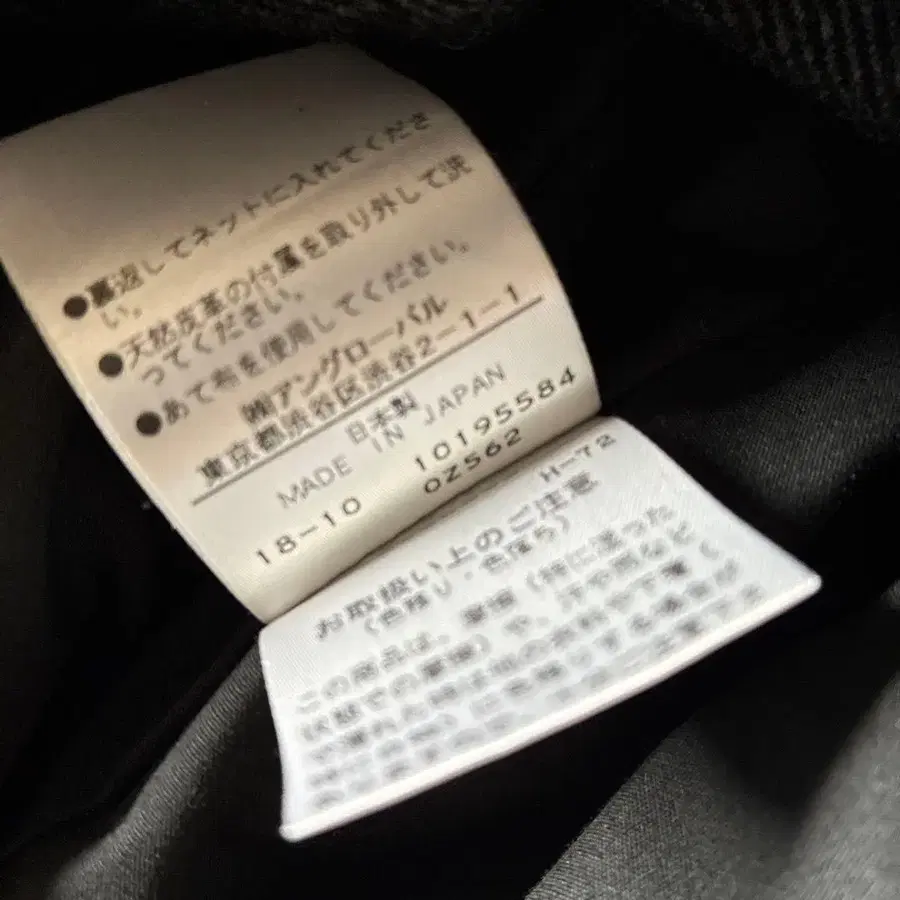 ●裏返してネットに入れてくださ
い。
●天然皮革の付属を取り外して洗
ってください。
●あて布を使用してください。
㈱アングローバル
東京都渋谷区渋谷2-1-1
日本製
MADE IN JAPAN
18-10 10195584
0Z562
H-72
お取扱い上のご注意
(色移り・色落ち)
この商品は、摩擦(特に湿った
状態での摩擦)や、汗や雨など